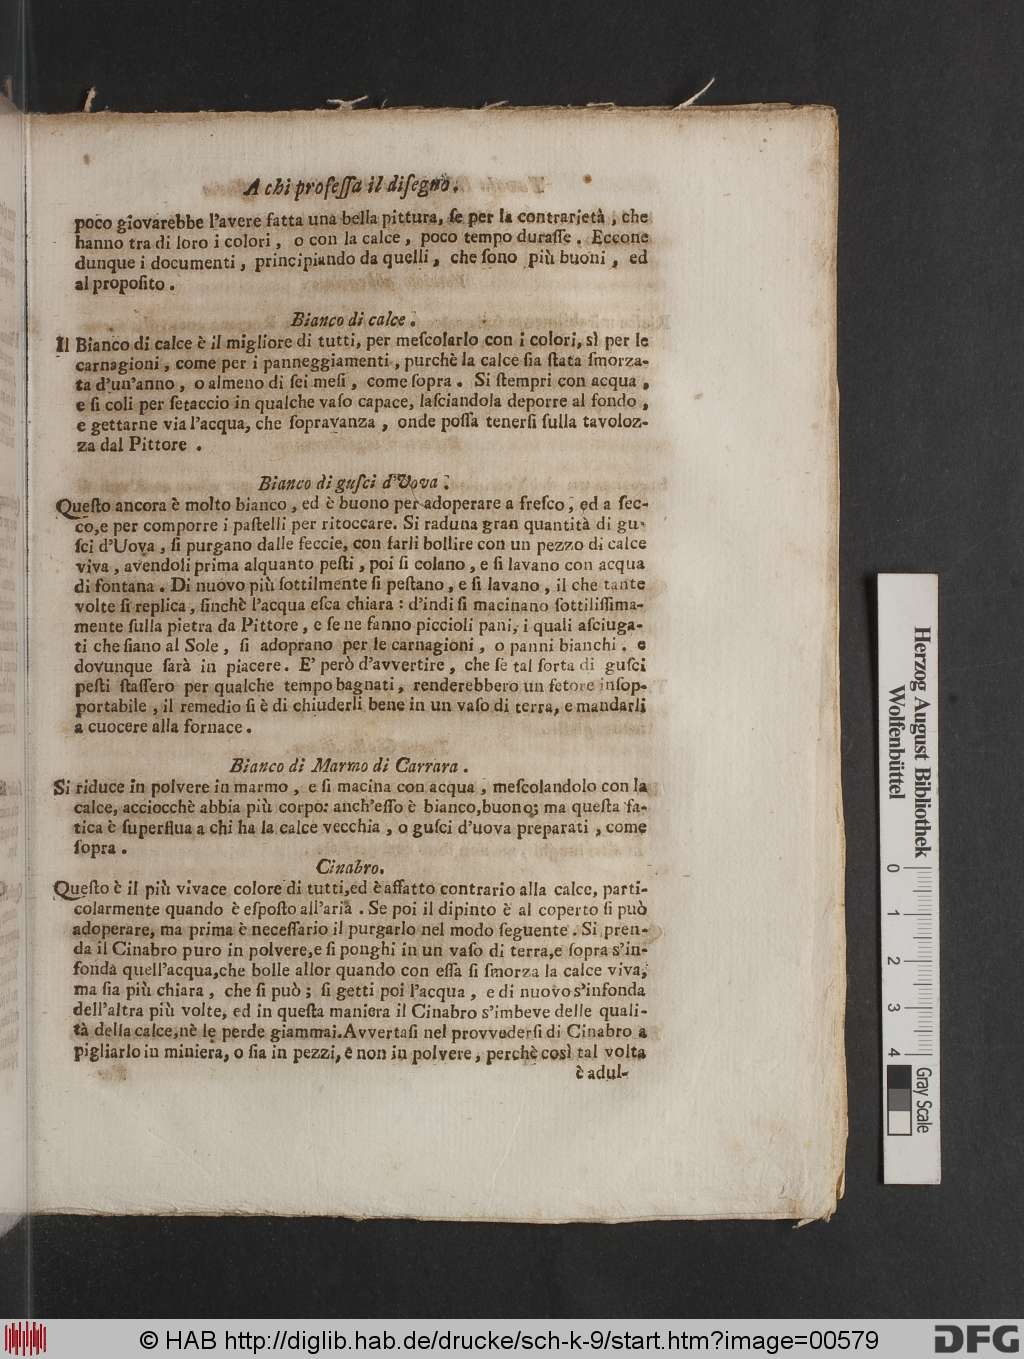 A chi profeſſa il diſegno.
poco giovarebbe l'avere fatta una bella pittura, ſe per la contrarietà, che
hanno tra di loro i colori, o con la calce, poco tempo duraſſe. Eccone
dunque i documenti, principiando da quelli, che ſono più buoni, ed
al propoſito.
Bianco di calce.
Il Bianco di calce è il migliore di tutti, per meſcolarlo con i colori, sì per le
carnagioni, come per i panneggiamenti, purchè la calce ſia ſtata ſmorza-
ta d'un'anno, o almeno di ſei meſi, come ſopra. Si ſtempri con acqua,
e ſi coli per ſetaccio in qualche vaſo capace, laſciandola deporre al fondo,
e gettarne via l'acqua, che ſopravanza, onde poſſa tenerſi ſulla tavoloz-
za dal Pittore.
Bianco di guſci d'Uova.
Queſto ancora è molto bianco, ed è buono per adoperare a freſco, ed a ſec-
co, e per comporre i paſtelli per ritoccare. Si raduna gran quantità di gu-
ſci d'Uova, ſi purgano dalle feccie, con farli bollire con un pezzo di calce
viva, avendoli prima alquanto peſti, poi ſi colano, e ſi lavano con acqua
di fontana. Di nuovo più ſottilmente ſi peſtano, e ſi lavano, il che tante
volte ſi replica, ſinchè l'acqua eſca chiara: d'indi ſi macinano ſottiliſſima-
mente ſulla pietra da Pittore, e ſe ne fanno piccioli pani, i quali aſciuga-
ti che ſiano al Sole, ſi adoprano per le carnagioni, o panni bianchi. e
dovunque ſarà in piacere. E' però d'avvertire, che ſe tal ſorta di guſci
peſti ſtaſſero per qualche tempo bagnati, renderebbero un fetore inſop-
portabile, il remedio ſi è di chiuderli bene in un vaſo di terra, e mandarli
a cuocere alla fornace.
Bianco di Marmo di Carrara.
Si riduce in polvere in marmo, e ſi macina con acqua, meſcolandolo con la
calce, acciocchè abbia più corpo: anch'eſſo è bianco, buono; ma queſta fa-
tica è ſuperflua a chi ha la calce vecchia, o guſci d'uova preparati, come
ſopra.
Cinabro.
Queſto è il più vivace colore di tutti, ed è affatto contrario alla calce, parti-
colarmente quando è eſpoſto all'aria. Se poi il dipinto è al coperto ſi può
adoperare, ma prima è neceſſario il purgarlo nel modo ſeguente. Si pren-
da il Cinabro puro in polvere, e ſi ponghi in un vaſo di terra, e ſopra s'in-
fonda quell'acqua, che bolle allor quando con eſſa ſi ſmorza la calce viva,
ma ſia più chiara, che ſi può; ſi getti poi l'acqua, e di nuovo s'infonda
dell'altra più volte, ed in queſta maniera il Cinabro s'imbeve delle quali-
tà della calce, nè le perde giammai. Avvertaſi nel provvederſi di Cinabro a
pigliarlo in miniera, o ſia in pezzi, e non in polvere, perchè così tal volta
è adul-
Herzog August Bibliothek
Wolfenbüttel
0 1 2 3 4
Gray Scale
© HAB http://diglib.hab.de/drucke/sch-k-9/start.htm?image=00579
DFG